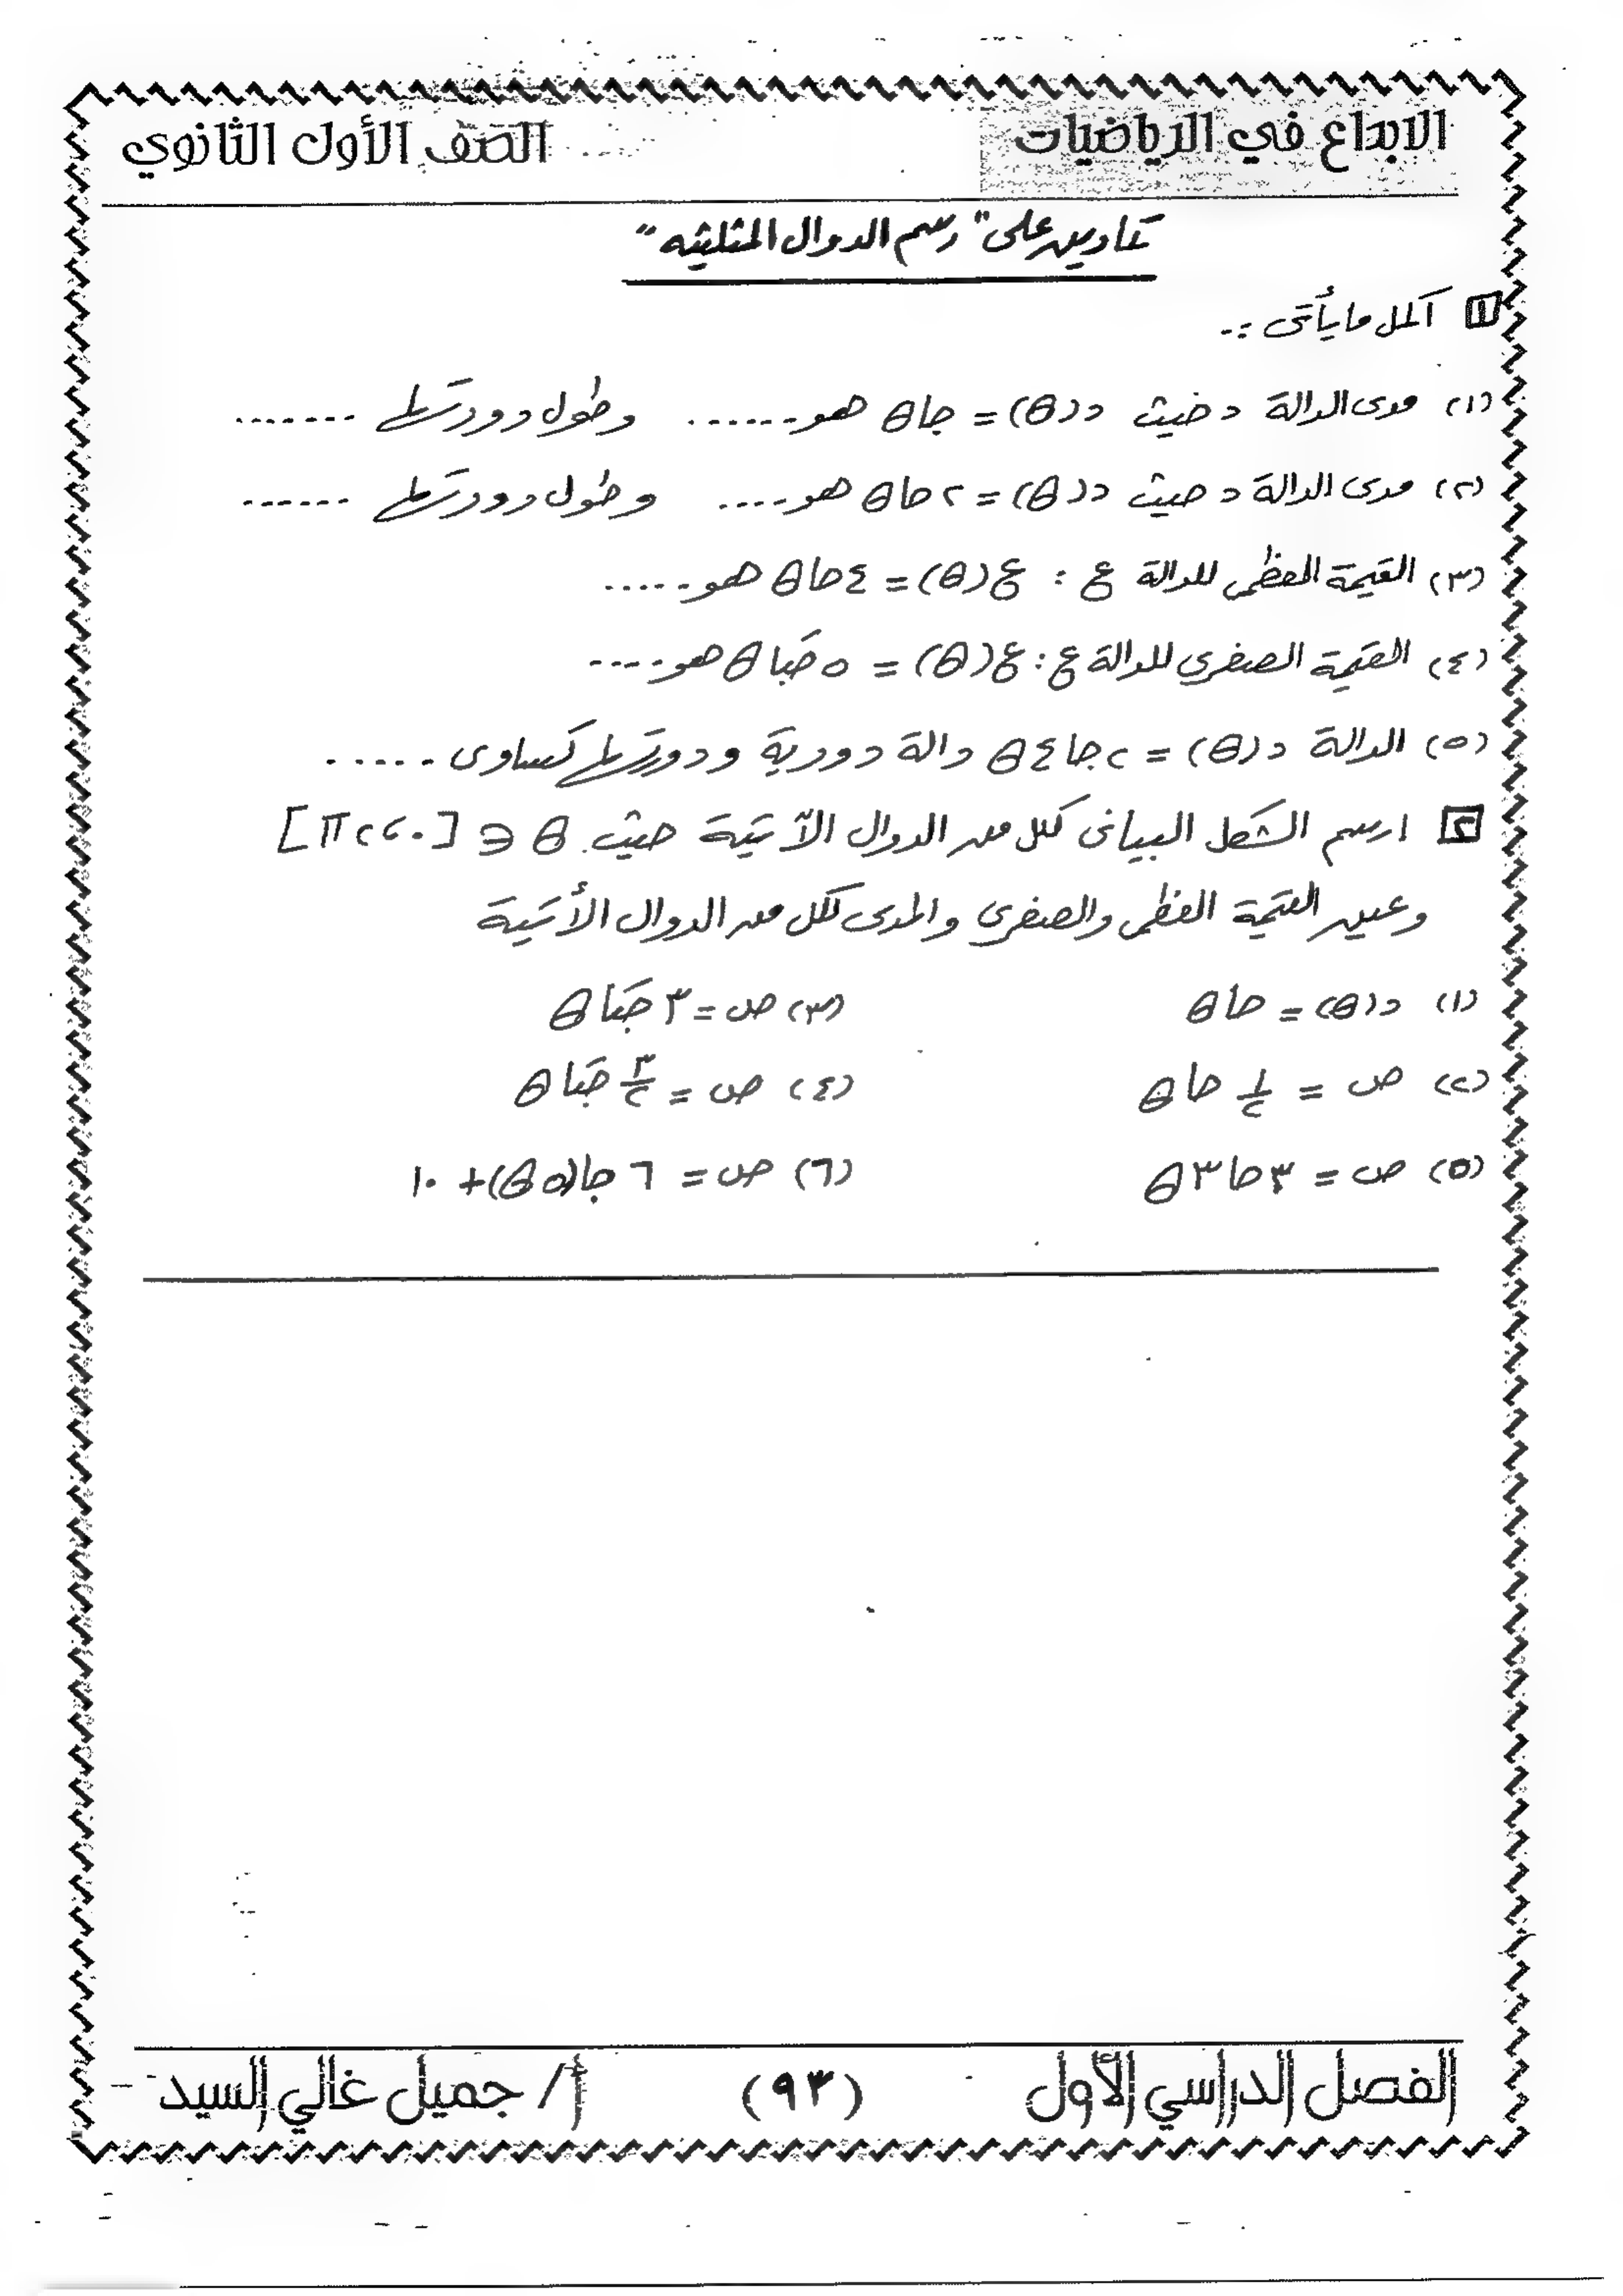 الابداع في الرياضيات
الصف الأول الثانوي
تمارين على "رسم الدوال المثلثيه"
١ أكمل ما يأتى :-
(١) مدى الدالة د حيث د(θ) = جا θ هو ....... وطول دورتها .......
(٢) مدى الدالة د حيث د(θ) = ٢ حا θ هو .... وطول دورتها ......
(٣) القيمة العظمى للدالة ع : ع(θ) = ٤ حا θ هو .....
(٤) القيمة الصغرى للدالة ع : ع(θ) = ٥ حتا θ هو ....
(٥) الدالة د(θ) = ٢ جا ٤ θ دالة دورية ودورتها تساوى .....
٢ ارسم الشكل البيانى لكل من الدوال الآتية حيث θ ∈ [٠، ٢ π]
وعين القيمة العظمى والصغرى والمدى لكل من الدوال الأتية
(١) د(θ) = حا θ
(٣) ص = ٣ جتا θ
(٢) ص = ١/٢ حا θ
(٤) ص = ٣/٢ جتا θ
(٥) ص = ٣ حا ٣ θ
(٦) ص = ٦ جا(٥ θ) + ١٠
الفصل الدراسي الأول
(٩٣)
أ/ جميل غالي السيد